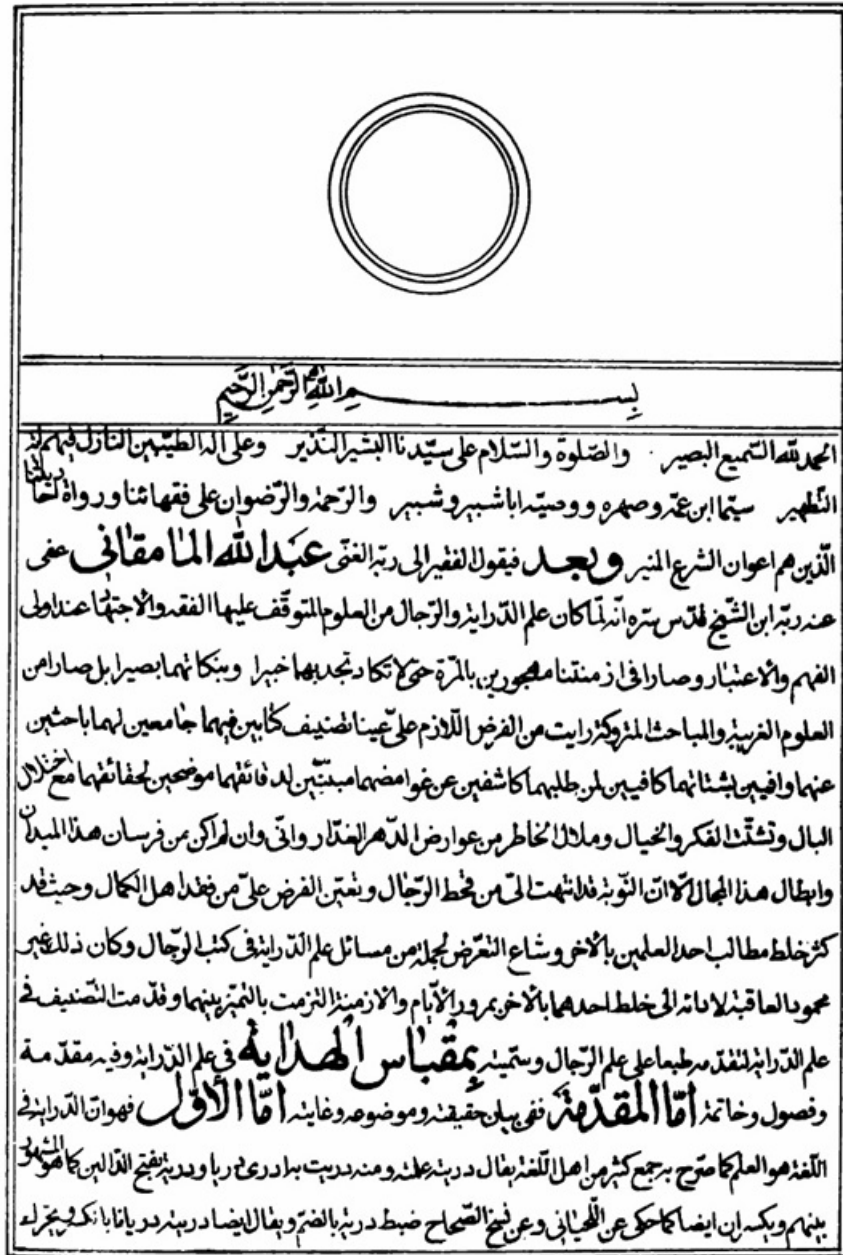 بِسْمِ اللّٰهِ الرَّحْمٰنِ الرَّحِيمِ
الحمد للّه السّميع البصير والصّلوة والسّلام على سيّدنا البشير النّذير وعلى آله الطيّبين النازل فيهم آية
التّطهير سيّما ابن عمّه وصهره ووصيّه ابا شبير وشبر والرّحمة والرّضوان على فقهائنا ورواة احاديثنا
الّذين هم اعوان الشرع المنير وبعد فيقول الفقير الى ربّه الغنّى عبد اللّه المامقانى عفى
عنه ربّه ابن الشّيخ قدّس سرّه انّه لمّا كان علم الدّراية والرّجال من العلوم المتوقّف عليها الفقه والاجتهاد عند اولى
الفهم والاعتبار وصارا فى ازمنتنا مهجورين بالمرّة حتى لا تكاد تجد بهما خبيرا وبنكاتهما بصيرا بل صارا من
العلوم الغريبة والمباحث المتروكة رايت من الفرض اللّازم علىّ عينا تصنيف كتابين فيهما جامعين لهما باحثين
عنهما وافيين بشتاتهما كافيين لمن طلبهما كاشفين عن غوامضهما مبيّنين لدقائقهما موضحين لحقائقهما مع اختلال
البال وتشتّت الفكر والخيال وملال الخاطر من عوارض الدّهر الغدّار وانّى وان لم اكن من فرسان هذا الميدان
وابطال هذا المجال الّا انّ النّوبة قد انتهت الىّ من قحط الرّجال وتعيّن الفرض علىّ من فقد اهل الكمال وحيث قد
كثر خلط مطالب احد العلمين بالاخر وشاع التعرّض لجملة من مسائل علم الدّراية فى كتب الرّجال وكان ذلك غير
محمود العاقبة لادائه الى خلط احدهما بالآخر بمرور الايّام والازمنة التزمت بالتميّز بينهما وقدّمت التّصنيف فى
علم الدّراية لتقدّمه طبعا على علم الرّجال وسمّيته بمقباس الهداية فى علم الدّراية وفيه مقدّمة
وفصول وخاتمة امّا المقدّمة ففى بيان حقيقته وموضوعه وغايته امّا الأوّل فهو انّ الدّراية فى
اللّغة هو العلم كما صرّح به جمع كثير من اهل اللّغة يقال دريته علمته ومنه دريت به ادرى دريا ودرية بفتح الدّالين كما هو المشهور
بينهم وبكسران ايضا كما حكى عن اللّحيانى وعن نسخ الصّحاح ضبط درية بالضّم ويقال ايضا دريته دريانا بالكسر ويحرّك